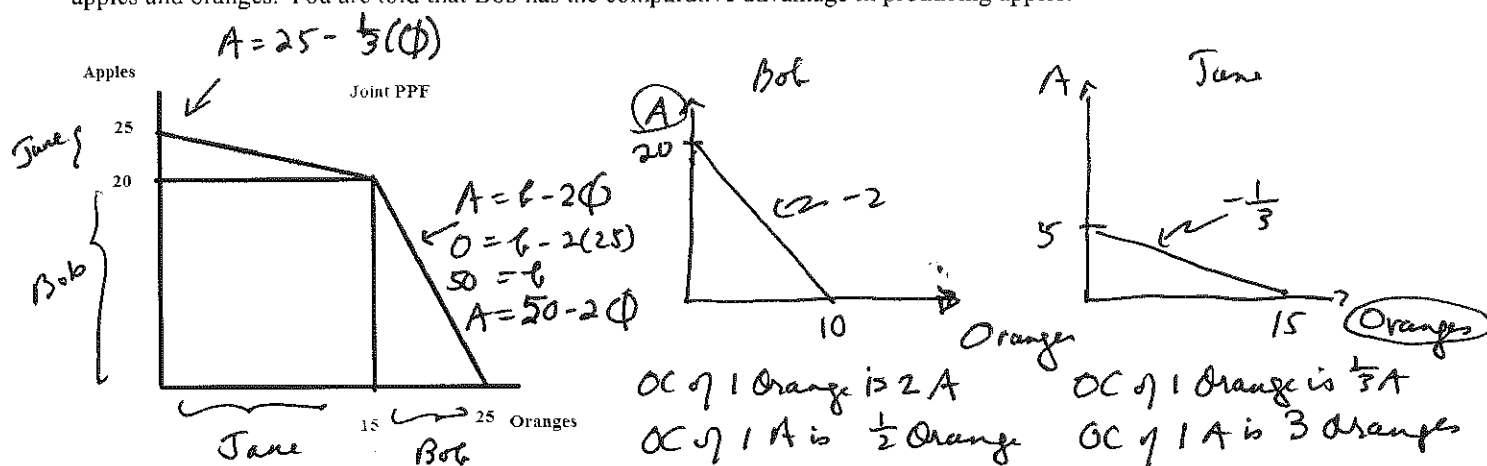 apples and oranges. You are told that Bob has the comparative advantage in producing apples.
A = 25 - 1/3(O)
Apples
Joint PPF
25
20
Jane
Bob
A = b - 2O
0 = b - 2(25)
50 = b
A = 50 - 2O
15
25
Oranges
Jane
Bob
Bob
A
20
-2
10
Oranges
OC of 1 Orange is 2 A
OC of 1 A is 1/2 Orange
Jane
A
5
-1/3
15
Oranges
OC of 1 Orange is 1/3 A
OC of 1 A is 3 Oranges